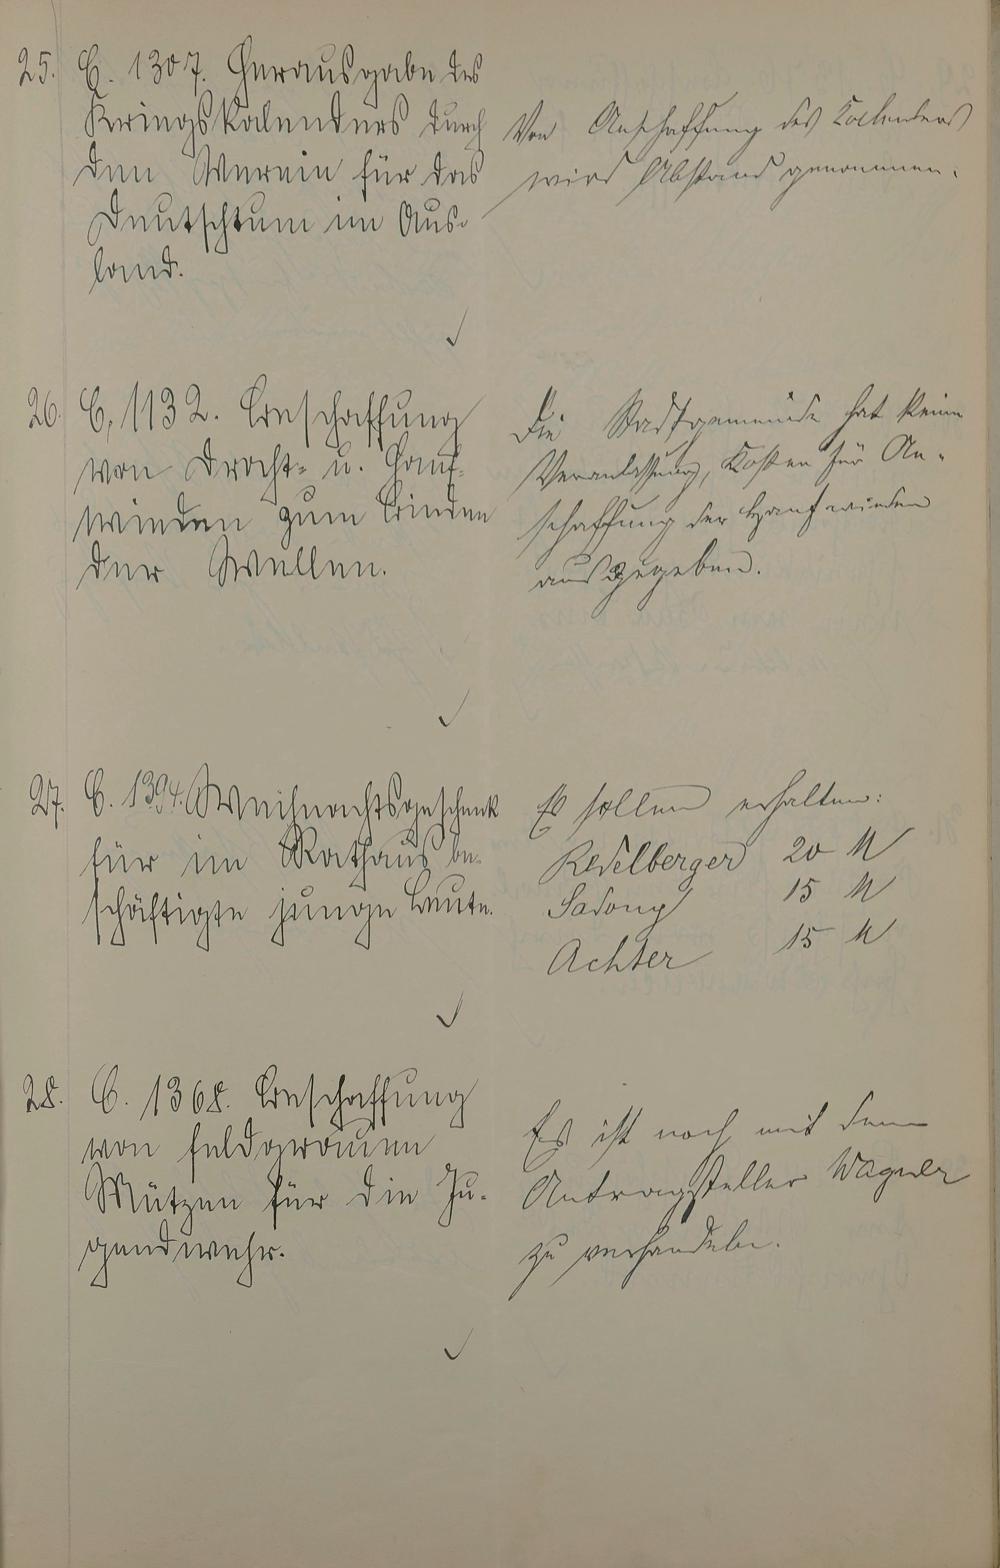 25. C. 1307. Herausgabe des
Kriegskalenders durch
den Verein für das
Deutschtum im Aus-
land.
Von Anschaffung des Kalenders
wird Abstand genommen.
26. C. 1132. Beschaffung
von Draht- u. Hanf-
winden zum Binden
der Wellen.
Die Stadtgemeinde hat keine
Veranlassung, Kosten für An-
schaffung der Hanfwinden
auszugeben.
27. C. 1394. Weihnachtsgeschenk
für im Rathaus be-
schäftigte junge Leute.
Es sollen erhalten:
Redelberger 20 M
Sadony 15 M
Achter 15 M
28. C. 1368. Beschaffung
von feldgrauen
Mützen für die Ju-
gendwehr.
Es ist noch mit dem
Antragsteller Wagner
zu verhandeln.